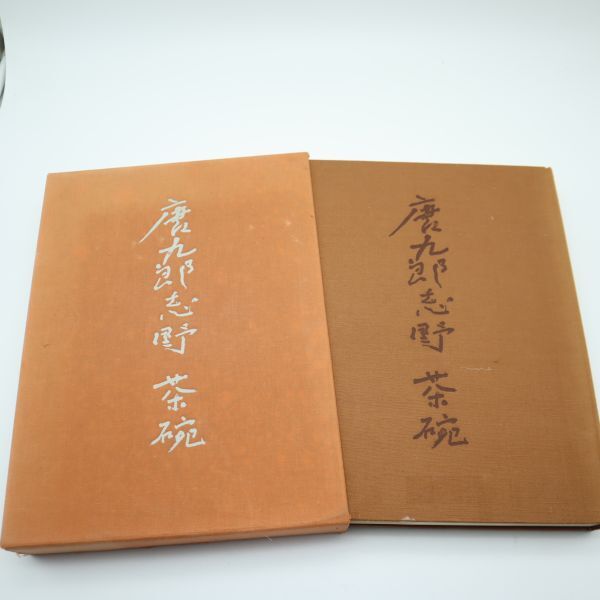 唐九郎志野 茶碗
唐九郎志野 茶碗